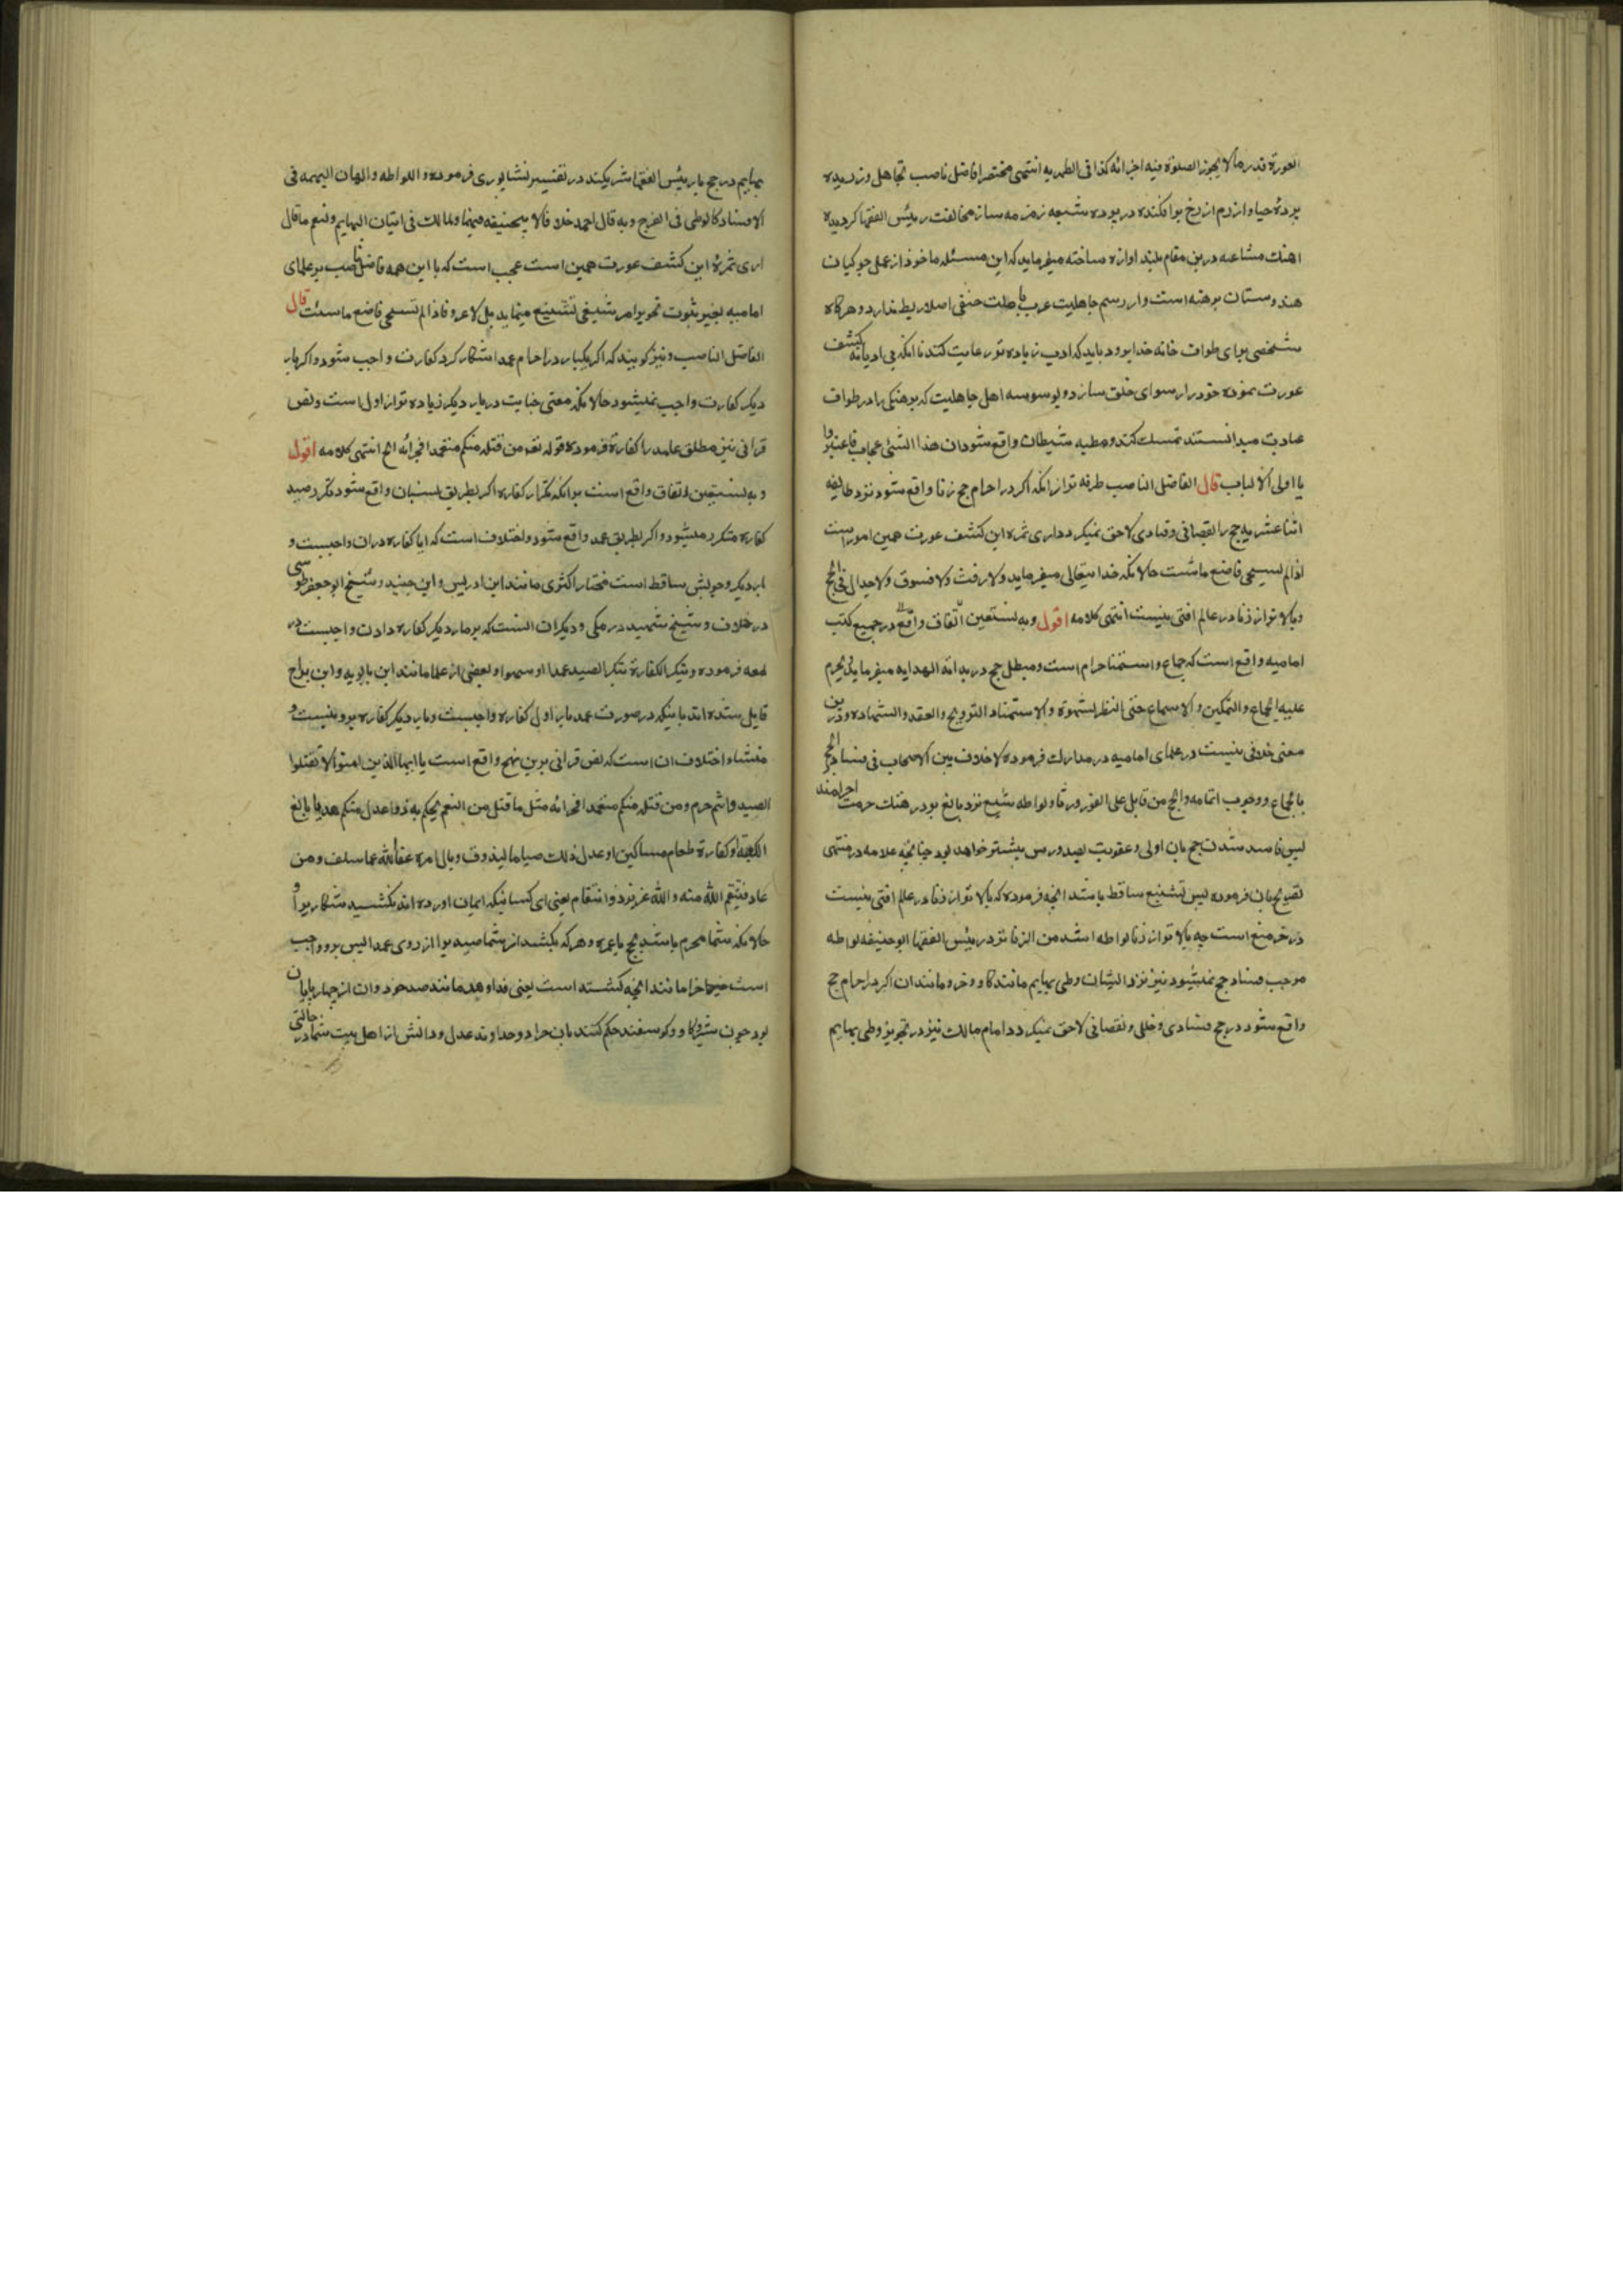 العورة قدر ما لا یجوز الصلوة فیه اجزائه کذا فی الظهریه انتهی مختصرا فاضل ناصب تجاهل ورزیده
پردهٔ حیا و ازرم از رخ بر افکنده در پرده شیعه زمزمه ساز مخالفت رئیس الفقها کردیده
اهنک مشاعه درین مقام بلند اوازه ساخته میفرماید که این مسئله ماخوذ از عمل جوکیان
هندوستان برهنه است و از رسم جاهلیت عرب با ملت حنفی اصلا ربط ندارد و هرکاه
شخصی برای طواف خانه خدا برود باید که ادب زیاده تر رعایت کند نه انکه بی ادبانه کشف
عورت نموده خود را رسوای خلق سازد و بوسوسه اهل جاهلیت که برهنکی را در طواف
عبادت میدانستند تمسک کند و مطیه شیطان واقع شود ان هذا الشئ عجاب فاعتبروا
یا اولی الالباب قال الفاضل الناصب طرفه تر از انکه اکر در احرام حج زنا واقع شود نزد طایفه
اثنا عشریه حج را نقصانی و فسادی لاحق نمیکردد اری ثمره این کشف عورت همین امور است
اذا لم تستحی فاصنع ما شئت حالانکه خدا یتعالی میفرماید ولا رفث ولا فسوق ولا جدال فی الحج
و بالاتر از زنا در عالم افتی نیست انتهی کلامه اقول وبه نستعین اتفاق واقع در جمیع کتب
امامیه واقع است که جماع و استمنا حرام است و مبطل حج در بدائه الهدایه میفرماید یحرم
علیه الجماع والتمکین والاستماع حتی النظر بشهوة والاستمناء التزویج والعقد والشهاده و درین
معنی خلافی نیست در علمای امامیه در مدارک فرموده لا خلاف بین الاصحاب فی فساد الحج
بالجماع و وجوب اتمامه والحج من قابل علی الفور و زنا و لواطه شنیع نزد بالغ بود در هتک حرمت احرامند
پس فاسد شدن حج بان اولی و عقوبت بصدورس بیشتر خواهد بود چنانچه علامه در منتهی
تصریح بان فرموده پس تشنیع ساقط باشد انچه فرموده که بالاتر از زنا در عالم افتی نیست
در خر منع است چه بالاتر از زنا لواطه اشد من الزنا نزد رئیس الفقها ابو حنیفه لواطه
موجب فساد حج نمیشود نیز نزد ایشان وطی بهایم مانند کاو و خر و مانند ان اکر در احرام حج
واقع شود در حج فسادی و خللی و نقصانی لاحق نمیکردد امام مالک نیز در تجویز وطی بهایم
بهایم در حج با رئیس الفقها شریکند در تفسیر نشابوری فرموده و اللواطه و اتیان البهیمه فی
الافساد کالوطی فی الفرج وبه قال احمد خلافا لابیحنیفه فیهما ولمالک فی اتیان البهایم ونعم ما قال
اری ثمرهٔ این کشف عورت همین است عجب است که با این همه فاضل ناصب بر علمای
امامیه بغیر ثبوت تجویز امر شنیعی تشنیع مینماید بل لا عرو فاذا لم تستحی فاصنع ما شئت قال
الفاضل الناصب و نیز کویند که اکر یکبار در احرام عمدا شکار کرد کفارت واجب شود و اکر بار
دیکر کفارت واجب نمیشود حالانکه معنی جنایت در بار دیکر زیاده تر از اول است و نص
قرانی نیز مطلق عامد را کفارة فرموده قوله تعالی ومن قتله منکم متعمدا فجزائه الخ انتهی کلامه اقول
و به نستعین اتفاق واقع است برانکه تکرار کفاره اکر بطریق نسیان واقع شود بتکرر صید
کفاره متکرر میشود و اکر بطریق عمد واقع شود و اختلاف است که ایا کفاره دران واجبست و
بار دیکر وجوبش ساقط است مختار اکثری مانند ابن ادریس و ابن جنید و شیخ ابو جعفر طوسی
در خلاف و شیخ شهید در مکی و دیکران انست که بر هر بار دیکر کفاره دادن واجبست در
لمعه فرموده و تتکرر الکفارة بتکرر الصید عمدا او سهوا و بعضی از علما مانند ابن بابویه و ابن براج
قایل شده اند باینکه در صورت عمد بار اول کفاره واجبست و بار دیکر کفاره برو نیست و
منشاء اختلاف ان است که نص قرانی برین نهج واقع است یا ایها الذین امنوا لا تقتلوا
الصید وانتم حرم ومن قتله منکم متعمدا فجزائه مثل ما قتل من النعم یحکم به ذوا عدل منکم هدیا بالغ
الکعبة او کفارة طعام مساکین او عدل ذلک صیاما لیذوق وبال امره عفا الله عما سلف ومن
عاد فینتقم الله منه والله عزیز ذو انتقام یعنی ای کسانیکه ایمان اورده اند نکشید شکار بر را و
حالانکه شما محرم باشید بحج یا عمره و هر که بکشد از شما صید بر از روی عمدا پس برو واجب
است جزا مانند انچه کشته است یعنی فداء دهد مانند صد خود و ان از چهارپایان
بود چون شتر و کاو و کوسفند حکم کنند بان جزا دو خداوند عدل و دانش از اهل بیت شما در حالتی